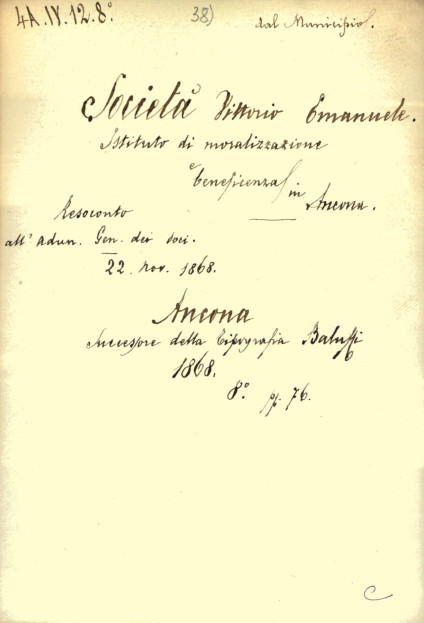 4A.IV.12.8°
38)
dal Municipio.
Società Vittorio Emanuele.
Istituto di moralizzazione
e
beneficenza in
Ancona.
Resoconto
all'adun. Gen. dei soci.
22. nov. 1868.
Ancona
Successore della Tipografia Baluffi
1868.
8° pp. 76.
C